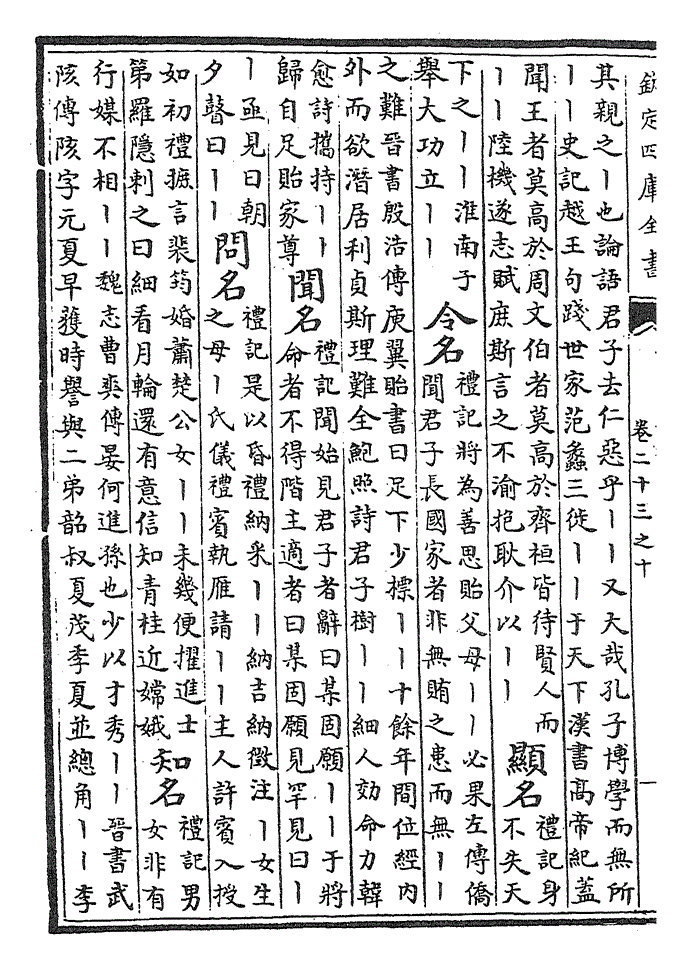 欽定四庫全書 卷二十三之十 一
其親之丨也論語君子去仁惡乎丨丨又大哉孔子博學而無所
丨丨史記越王句踐世家范蠡三徙丨丨于天下漢書高帝紀蓋
聞王者莫高於周文伯者莫高於齊桓皆待賢人而
丨丨陸機遂志賦庶斯言之不渝抱耿介以丨丨
顯名
禮記身
不失天
下之丨丨淮南子
舉大功立丨丨
令名
禮記將為善思貽父母丨丨必果左傳僑
聞君子長國家者非無賄之患而無丨丨
之難晉書殷浩傳庾翼貽書曰足下少標丨丨十餘年間位經內
外而欲潛居利貞斯理難全鮑照詩君子樹丨丨細人効命力韓
愈詩攜持丨丨
歸自足貽家尊
聞名
禮記聞始見君子者辭曰某固願丨丨于將
命者不得階主適者曰某固願見罕見曰丨
丨亟見曰朝
夕瞽曰丨丨
問名
禮記是以昏禮納采丨丨納吉納徵注丨女生
之母丨氏儀禮賓執雁請丨丨主人許賓入授
如初禮摭言裴筠婚蕭楚公女丨丨未幾便擢進士
第羅隱刺之曰細看月輪還有意信知青桂近嫦娥
知名
禮記男
女非有
行媒不相丨丨魏志曹爽傳晏何進孫也少以才秀丨丨晉書武
陔傳陔字元夏早獲時譽與二弟韶叔夏茂季夏並總角丨丨李